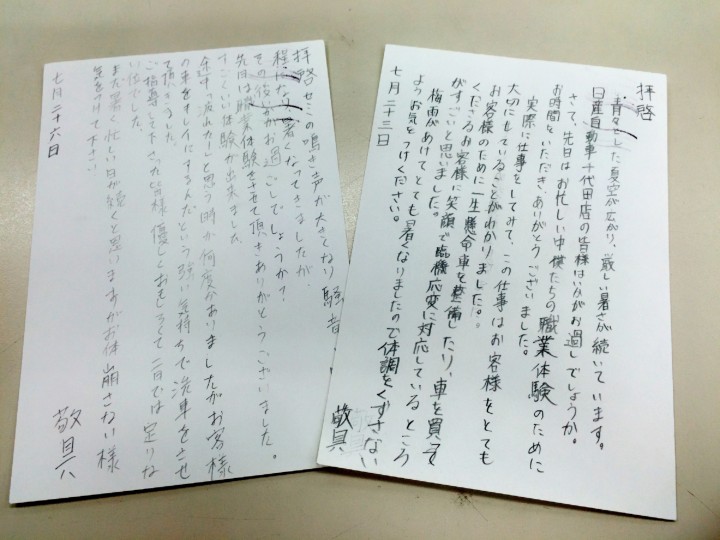 拝啓
青々とした夏空が広がり、厳しい暑さが続いています。
日産自動車千代田店の皆様はいかがお過しでしょうか。
さて、先日はお忙しい中僕たちの職業体験のために
お時間をいただき、ありがとうございました。
実際に仕事をしてみて、この仕事はお客様をとても
大切にしていることがわかりました。
お客様のために一生懸命車を整備したり、車を買って
くださるお客様に笑顔で臨機応変に対応しているところ
がすごいと思いました。
梅雨があけてとても暑くなりましたので体調をくずさない
ようお気をつけください。
敬具
七月二十三日
拝啓 セミの鳴き声が大きくなり騒音
程に 暑くなってきましたが、
その後いかがお過ごしでしょうか?
先日は職業体験させて頂きありがとうございました。
すごくいい体験が出来ました。
途中、疲れたーと思う時が何度かありましたがお客様
の車をキレイにするんだという強い気持ちで洗車をさせ
て頂きました。
ご指導して下さった皆様優しくおもしろくて二日では足りな
い位でした。
まだ暑く忙しい日が続くと思いますがお体崩さない様
気を付けて下さい。
敬具
七月二十六日